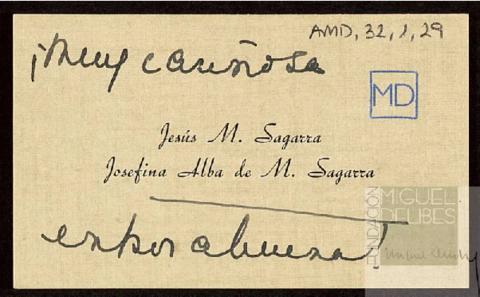 AMD, 32, 1, 29
¡Muy cariñosa
MD
Jesús M. Sagarra
Josefina Alba de M. Sagarra
enhorabuena!
FUNDACIÓN
MIGUEL
DELIBES